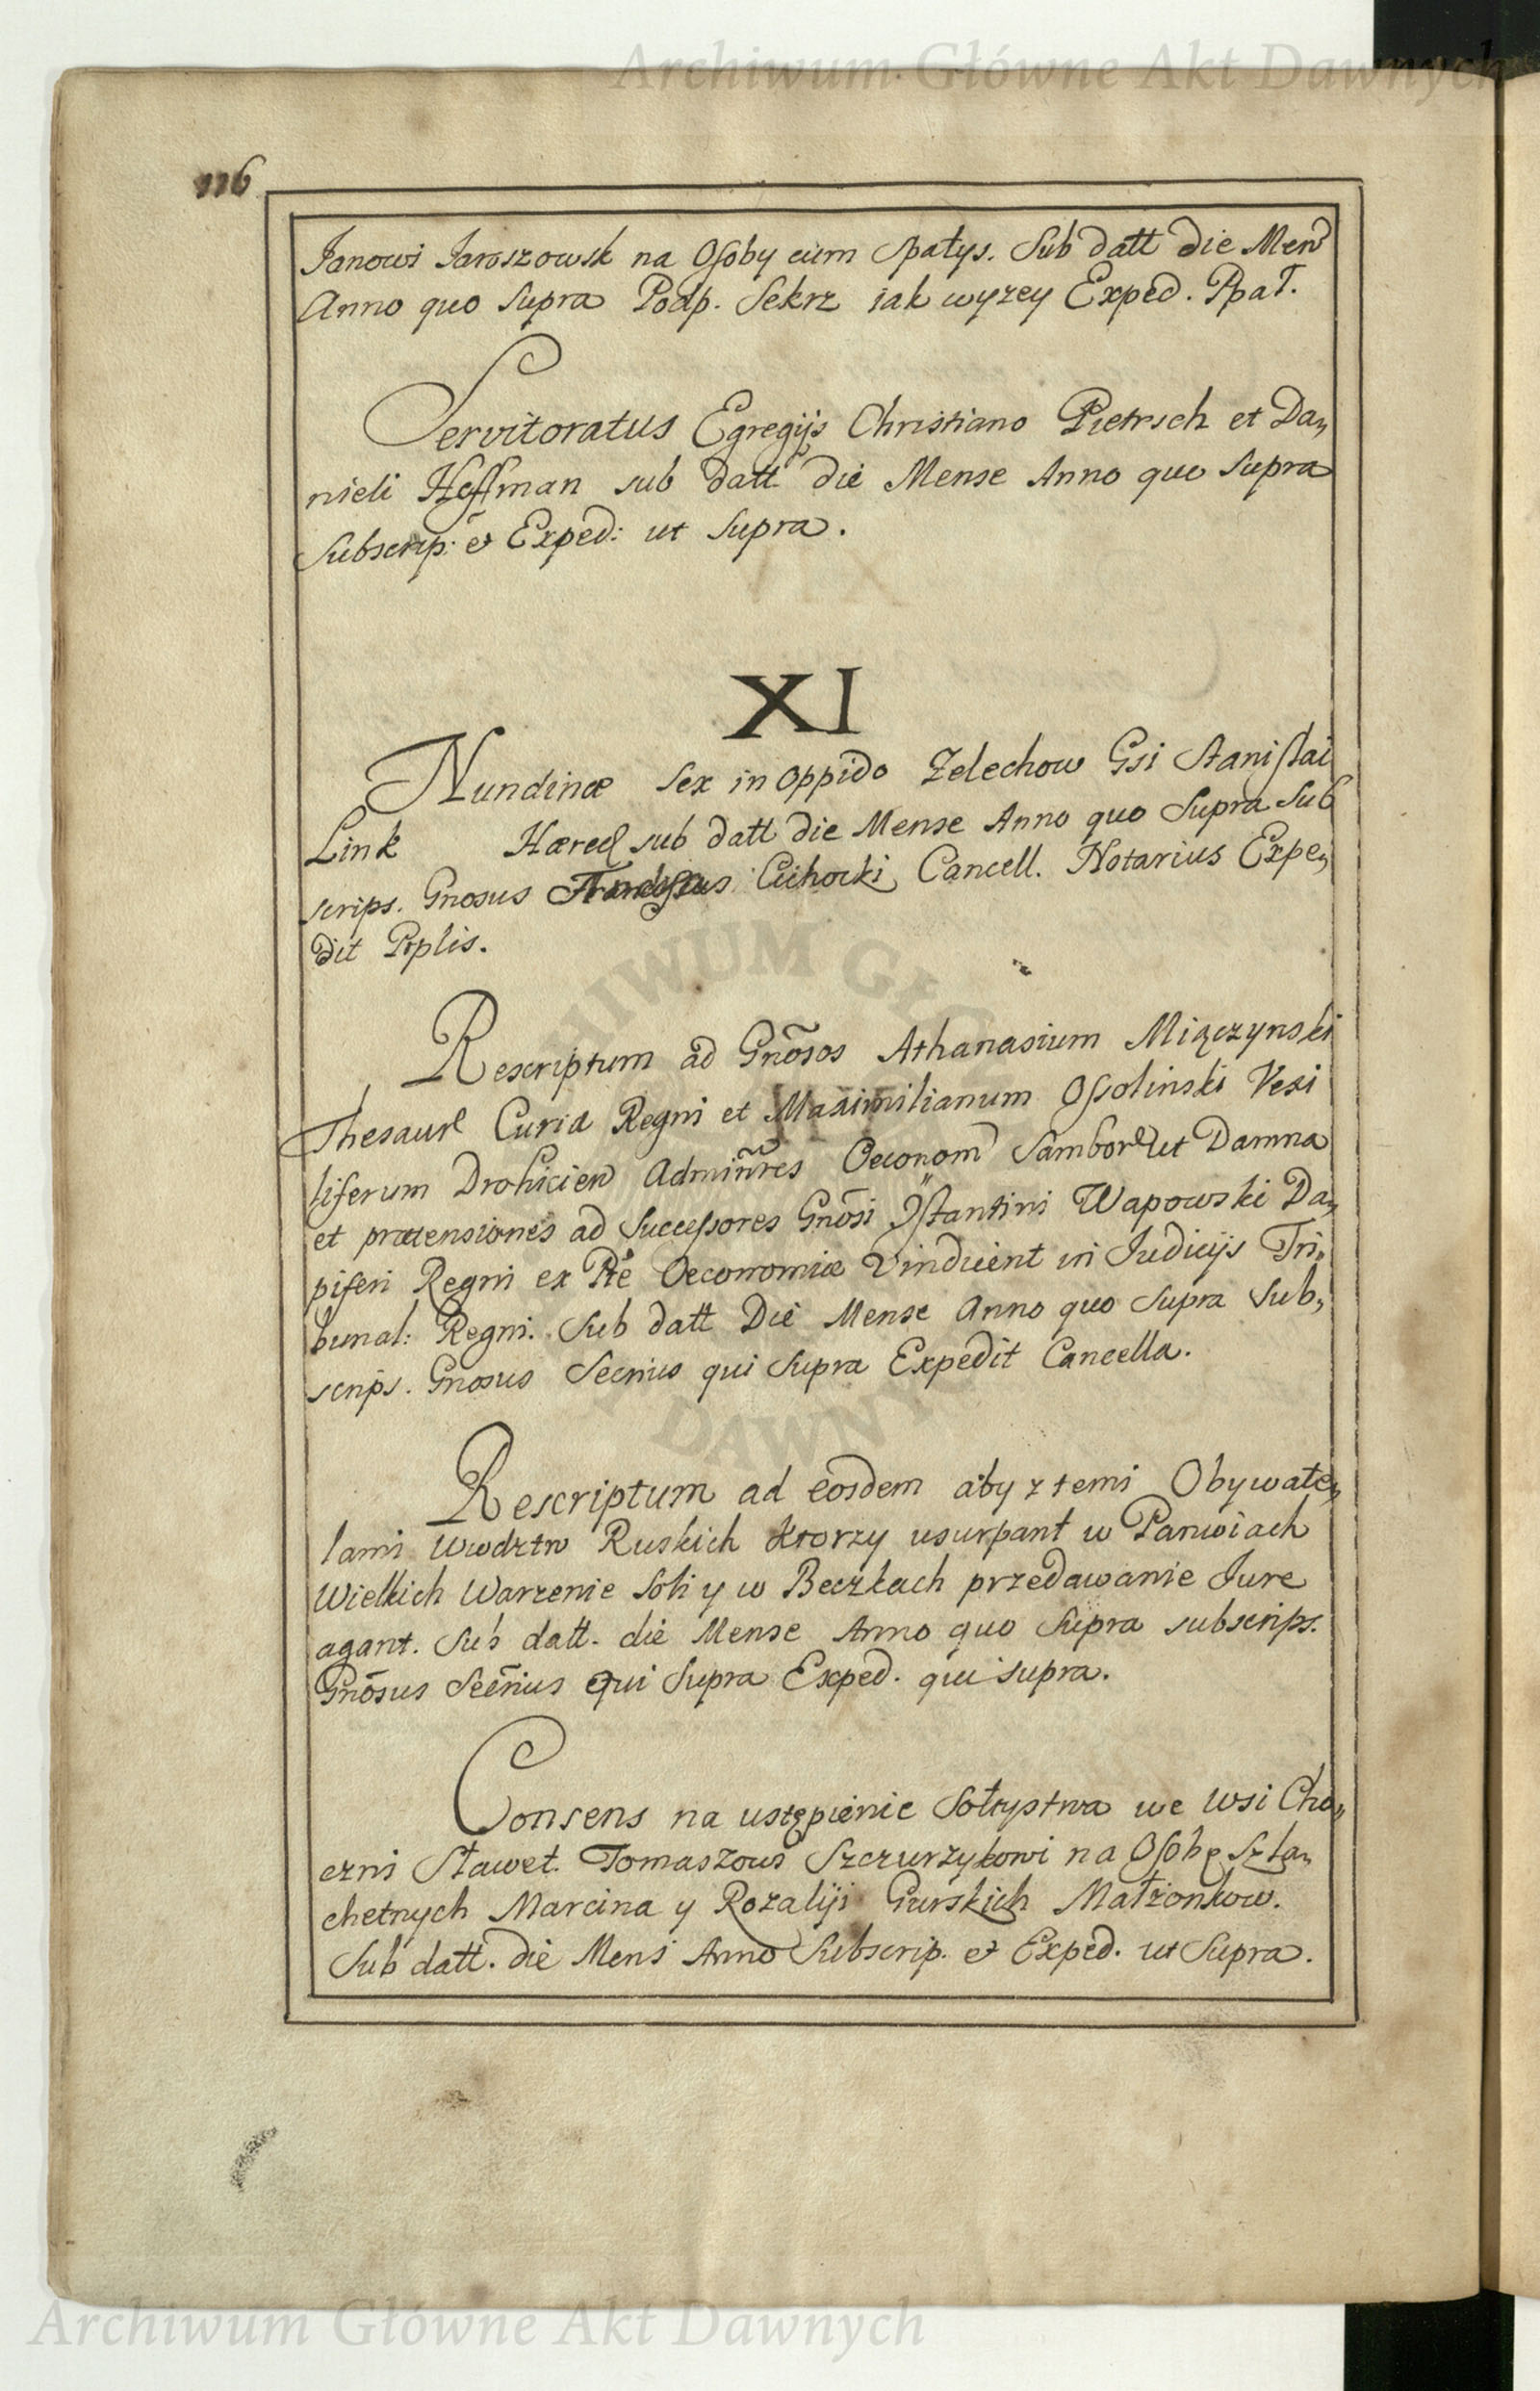 Archiwum Główne Akt Dawnych
116
Janowi Jaroszowsk na Osoby cum Spatys. Sub datt die Men
Anno quo Supra Podp. Sekrz iak wyzey Exped. PpaT.
Servitoratus Egregijs Christiano Pietrsch et Da„
nieli Hoffman sub datt die Mense Anno quo Supra
Subscrip: et Exped: ut Supra.
XI
Nundinæ Sex in Oppido Zelechow Gsi Stanislai
Link Hæred sub datt die Mense Anno quo Supra Sub
scrips. Gnosus Cichocki Cancell. Notarius Expe„
dit Pplis.
Rescriptum ad Gnõsos Athanasium Miączynski
Thesaur Curiæ Regni et Maximilianum Ossolinski Vexi
liferum Drohicien Adminres Oeconom Sambor ut Damna
et prætensiones ad Successores Gnõsi Ɔstantini Wapowski Da„
piferi Regni ex Pte Oeconomiæ Vindicent in Judicijs Tri„
bunal: Regni. Sub datt Die Mense Anno quo Supra Sub„
scrips. Gnosus Secrius qui Supra Expedit Cancella.
Rescriptum ad eosdem aby z temi Obywate„
lami Wwodztw Ruskich ktorzy usurpant w Panwiach
Wielkich Warzenie Soli y w Beczkach przedawanie Jure
agant. Sub datt. die Mense Anno quo Supra subscrips.
Gnõsus Secrius qui Supra Exped. qui supra.
Consens na ustąpienie Sołtystwa we Wsi Cho„
czni Sławet. Tomaszowi Szczurzykowi na Osobę Szla„
chetnych Marcina y Rozalii Gurskich Małżonkow.
Sub datt. die Mens Anno Subscrip. et Exped. ut Supra.
Archiwum Główne Akt Dawnych